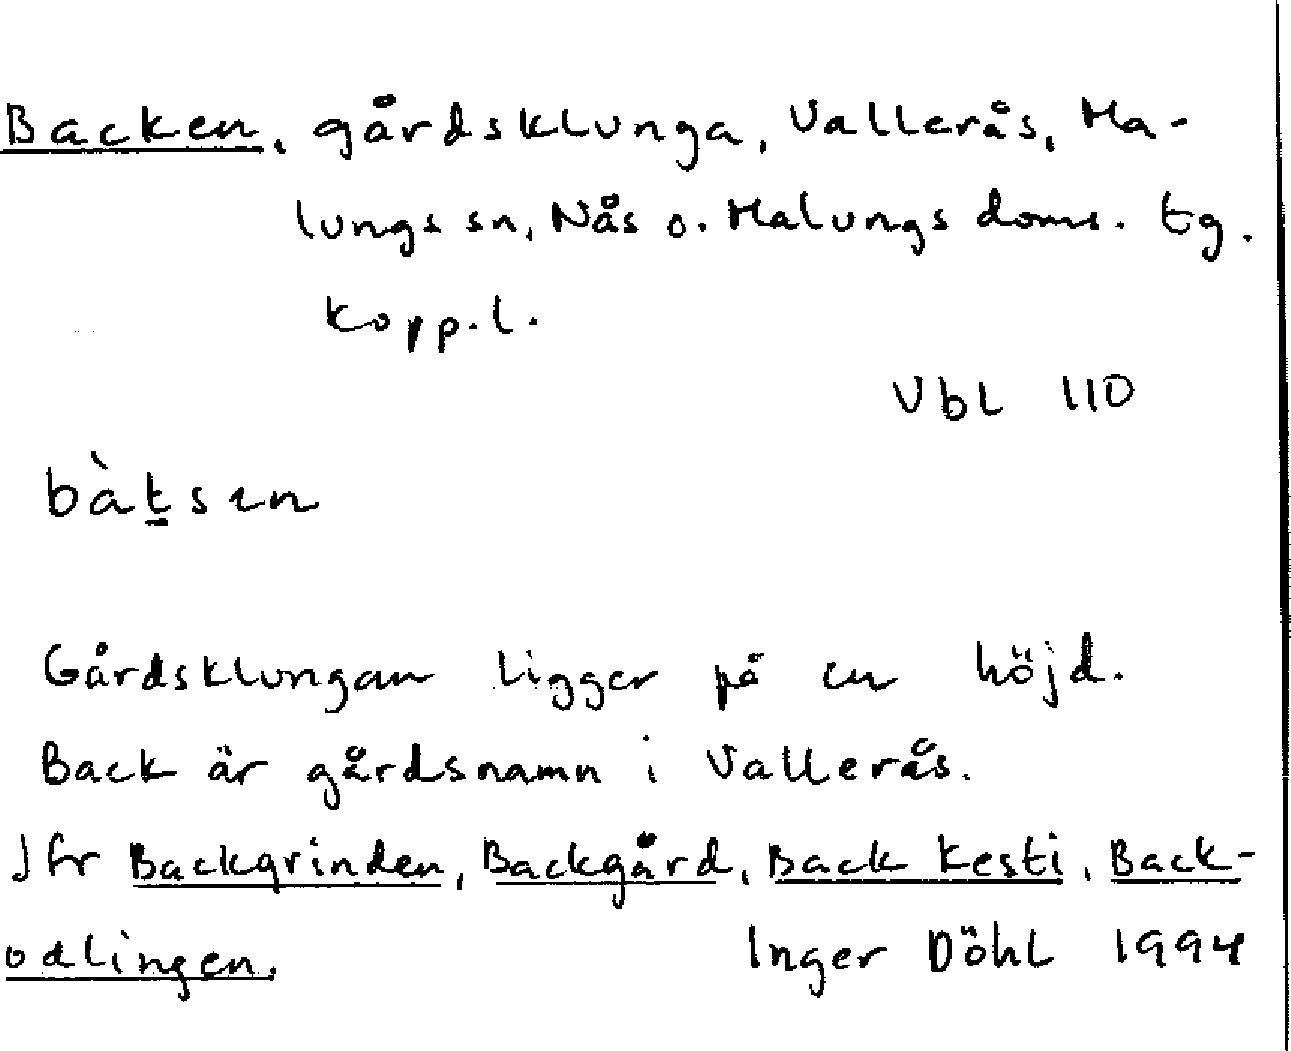 Backen, gårdsklunga, Vallerås, Ma-
lungs sn, Nås o. Malungs doms. tg.
Kopp.l.
Vbl 110
bàt̲sen
Gårdsklungan ligger på en höjd.
Back är gårdsnamn i Vallerås.
Jfr Backgrinden, Backgård, Back Kesti, Back-
odlingen.
Inger Döhl 1994